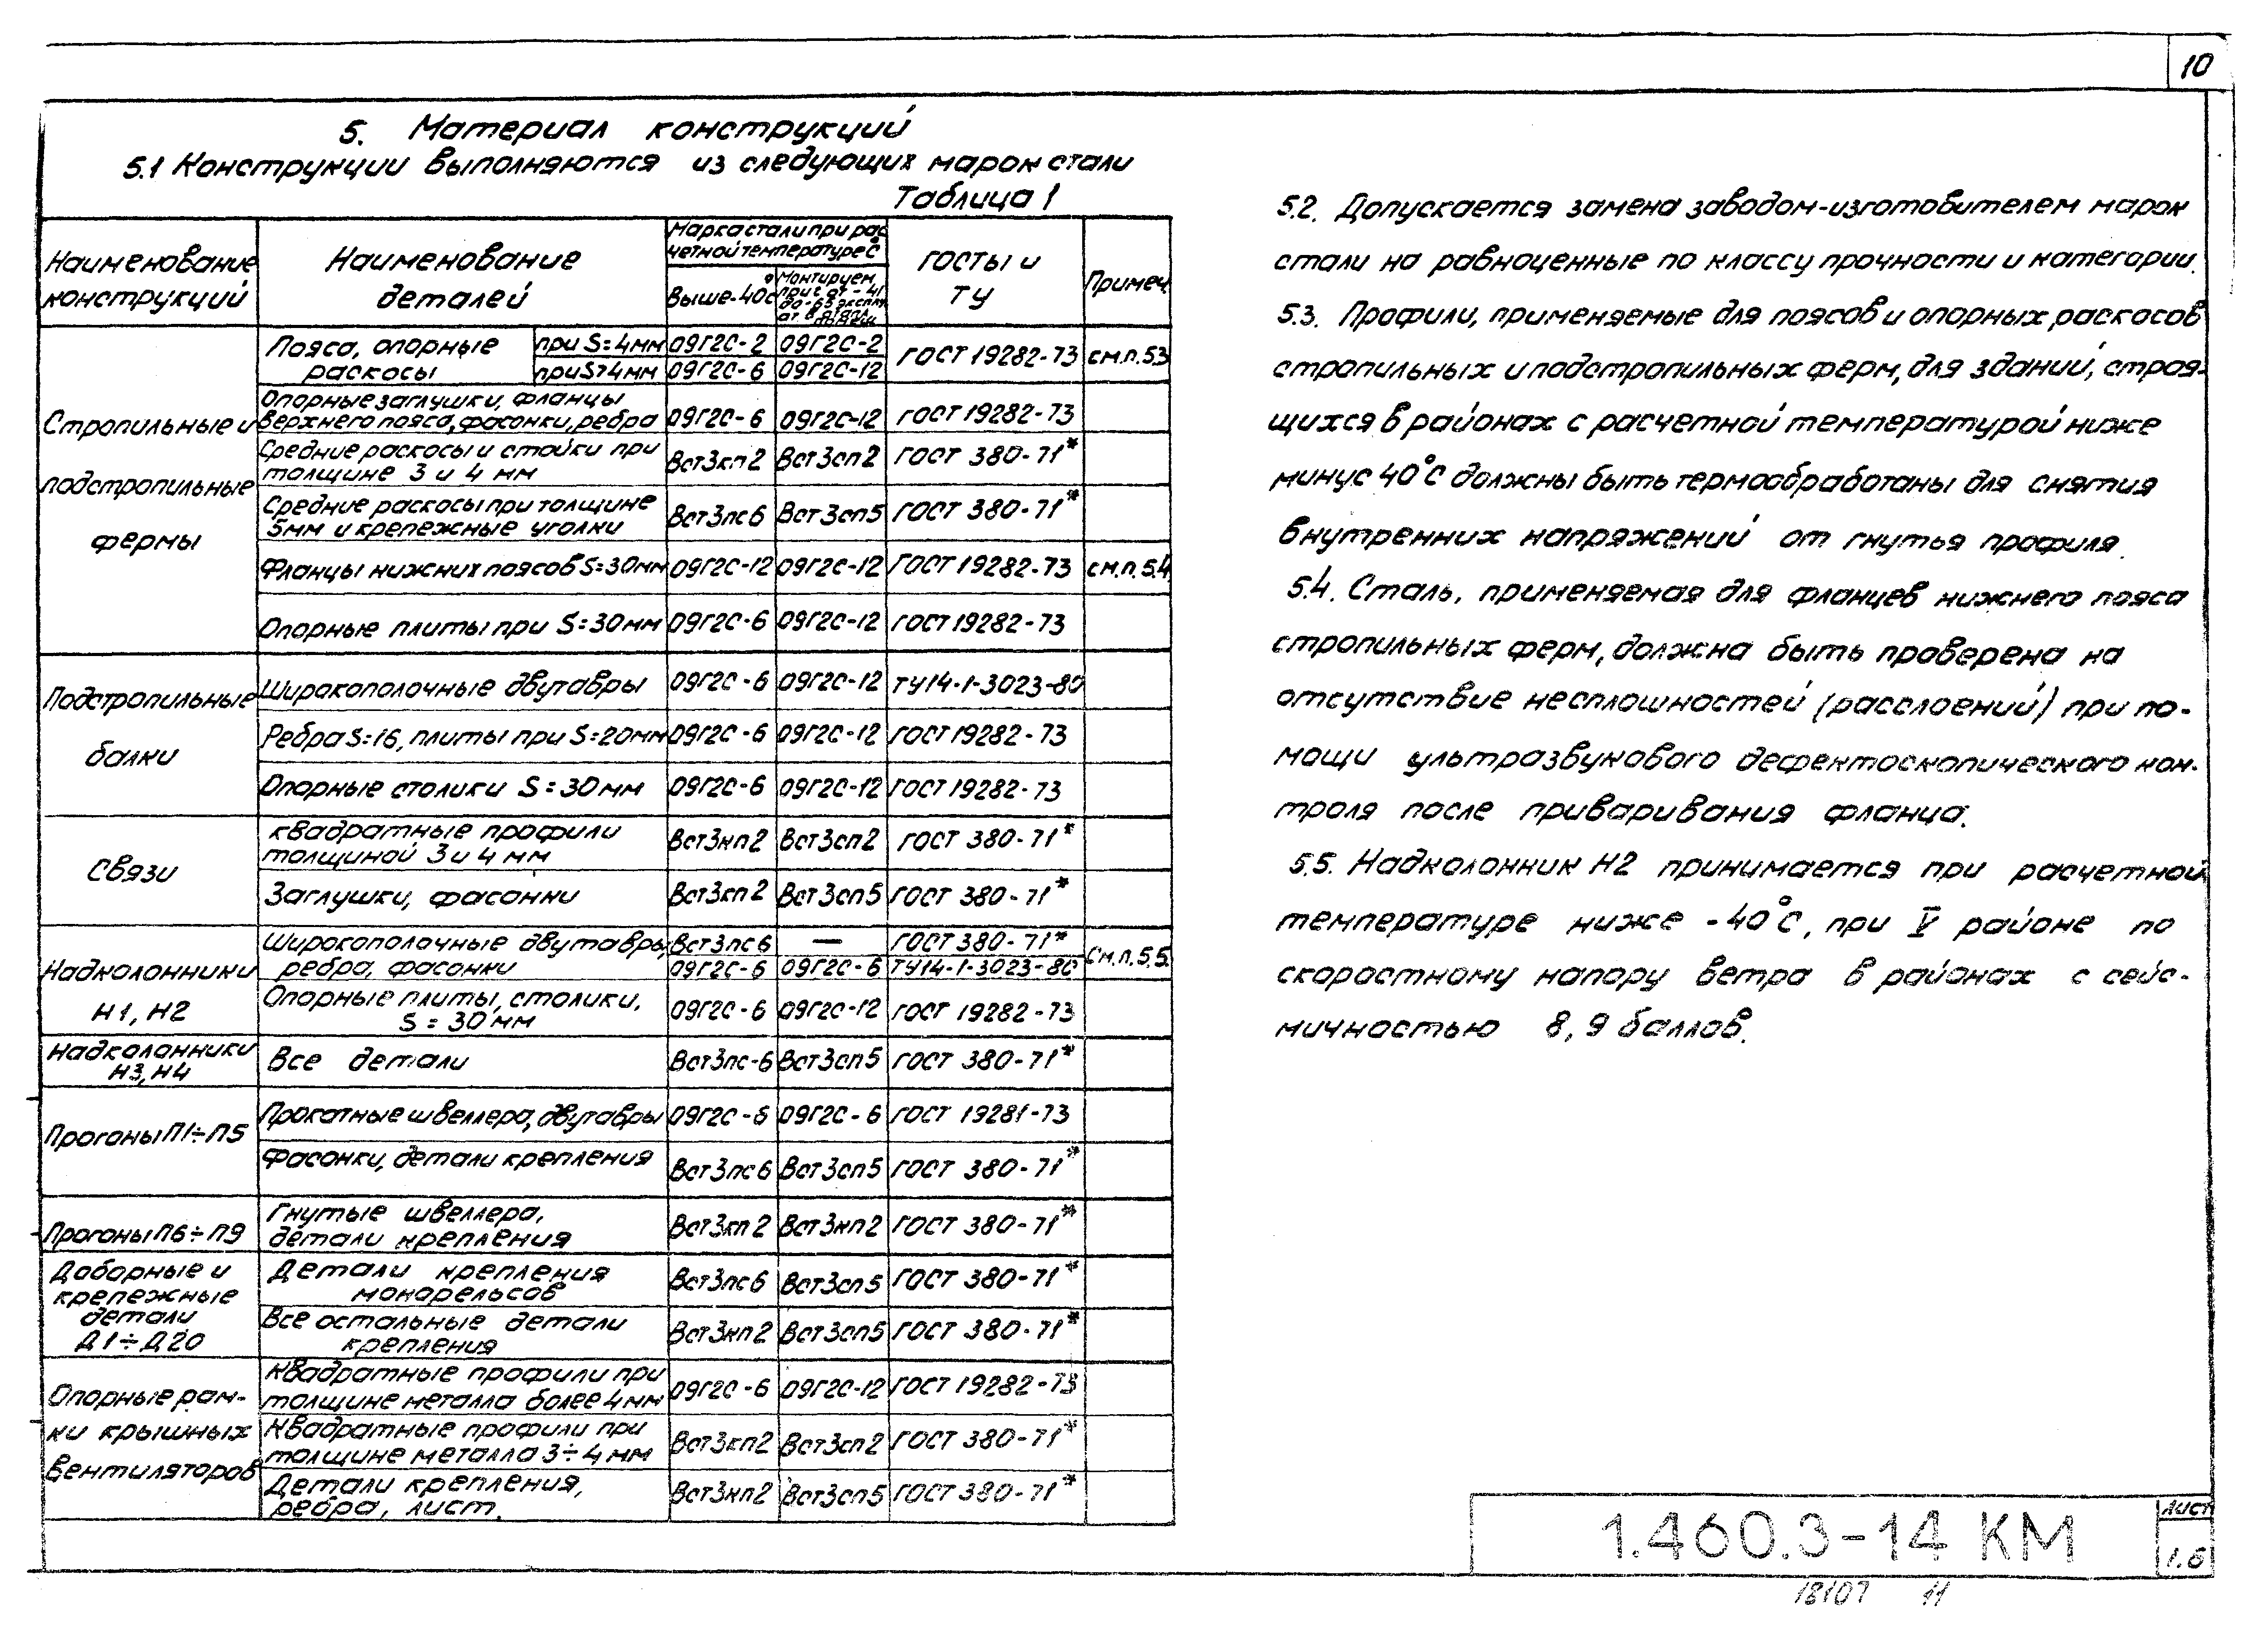 10
5. Материал конструкций
5.1 Конструкции выполняются из следующих марок стали
Таблица 1
Наименование конструкций
Наименование деталей
Марка стали при расчетной температуре °С
Выше -40°С
Монтируем. при t от -41 до -65
ГОСТы и ТУ
Примеч.
Стропильные и подстропильные фермы
Пояса, опорные раскосы
при S=4мм 09Г2С-2 09Г2С-2 ГОСТ 19282-73 см.п.5.3
при S>4мм 09Г2С-6 09Г2С-12
Опорные заглушки, фланцы верхнего пояса, фасонки, ребра 09Г2С-6 09Г2С-12 ГОСТ 19282-73
Средние раскосы и стойки при толщине 3 и 4 мм Вст3кп2 Вст3сп2 ГОСТ 380-71*
Средние раскосы при толщине 5мм и крепежные уголки Вст3пс6 Вст3сп5 ГОСТ 380-71*
Фланцы нижних поясов S=30мм 09Г2С-12 09Г2С-12 ГОСТ 19282-73 см.п.5.4
Опорные плиты при S=30мм 09Г2С-6 09Г2С-12 ГОСТ 19282-73
Подстропильные балки
Широкополочные двутавры 09Г2С-6 09Г2С-12 ТУ14-1-3023-80
Ребра S=16, плиты при S=20мм 09Г2С-6 09Г2С-12 ГОСТ 19282-73
Опорные столики S=30мм 09Г2С-6 09Г2С-12 ГОСТ 19282-73
Связи
квадратные профили толщиной 3 и 4 мм Вст3кп2 Вст3сп2 ГОСТ 380-71*
Заглушки, фасонки Вст3кп2 Вст3сп5 ГОСТ 380-71*
Надколонники Н1, Н2
Широкополочные двутавры, ребра, фасонки
Вст3пс6 — ГОСТ 380-71* См.п.5.5
09Г2С-6 09Г2С-6 ТУ14-1-3023-80
Опорные плиты, столики, S=30мм 09Г2С-6 09Г2С-12 ГОСТ 19282-73
Надколонники Н3, Н4
Все детали Вст3пс-6 Вст3сп5 ГОСТ 380-71*
Прогоны П1÷П5
Прокатные швеллера, двутавры 09Г2С-6 09Г2С-6 ГОСТ 19281-73
Фасонки, детали крепления Вст3пс6 Вст3сп5 ГОСТ 380-71*
Прогоны П6÷П9
Гнутые швеллера, детали крепления Вст3кп2 Вст3кп2 ГОСТ 380-71*
Доборные и крепежные детали Д1÷Д20
Детали крепления монорельсов Вст3пс6 Вст3сп5 ГОСТ 380-71*
Все остальные детали крепления Вст3кп2 Вст3сп5 ГОСТ 380-71*
Опорные рамки крышных вентиляторов
Квадратные профили при толщине металла более 4мм 09Г2С-6 09Г2С-12 ГОСТ 19282-73
Квадратные профили при толщине металла 3÷4 мм Вст3кп2 Вст3сп2 ГОСТ 380-71*
Детали крепления, ребра, лист. Вст3кп2 Вст3сп5 ГОСТ 380-71*
5.2. Допускается замена заводом-изготовителем марок
стали на равноценные по классу прочности и категории.
5.3. Профили, применяемые для поясов и опорных раскосов
стропильных и подстропильных ферм, для зданий, строя-
щихся в районах с расчетной температурой ниже
минус 40°С должны быть термообработаны для снятия
внутренних напряжений от гнутья профиля.
5.4. Сталь, применяемая для фланцев нижнего пояса
стропильных ферм, должна быть проверена на
отсутствие несплошностей (расслоений) при по-
мощи ультразвукового дефектоскопического кон-
троля после приваривания фланца.
5.5. Надколонник Н2 принимается при расчетной
температуре ниже -40°С, при V районе по
скоростному напору ветра в районах с сейс-
мичностью 8, 9 баллов.
1.460.3-14 КМ
Лист
1.6
18107 11